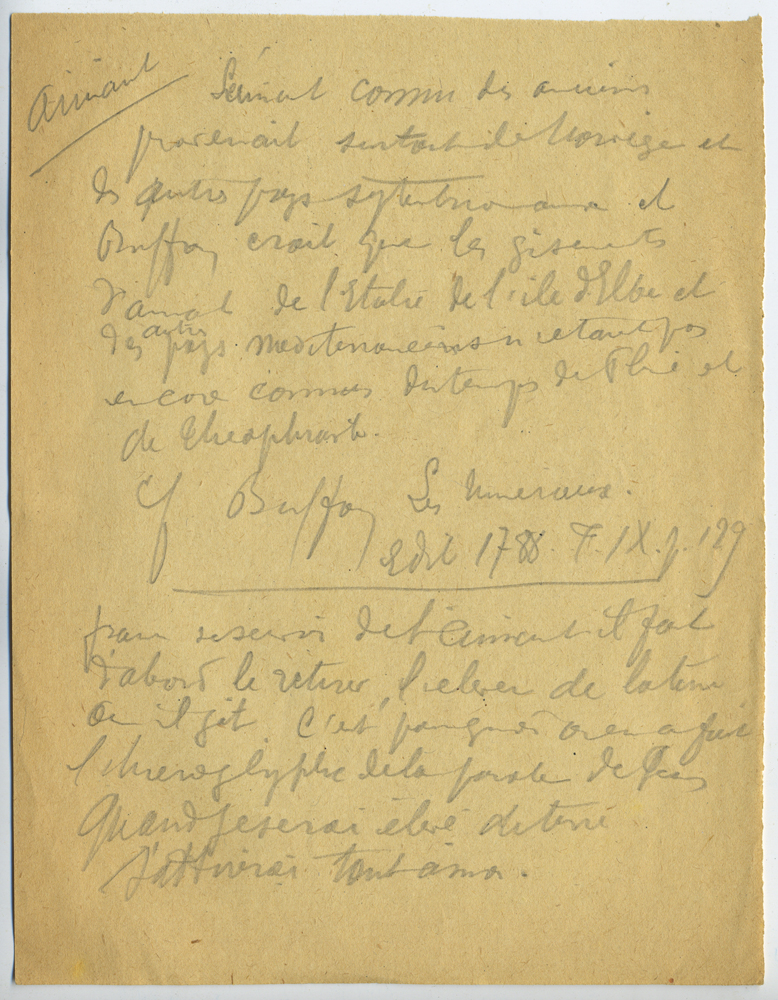 Aimant
L'aimant connu des anciens
provenait surtout de Norvège et
des autres pays septentrionaux et
Buffon croit que les gisements
d'aimant de l'Italie de l'île d'Elbe et
des autres pays mediterranéens n'etaient pas
encore connus du temps de Pline et
de Theophraste.
Cf Buffon Les Mineraux.
Edit 1788. T. IX. p. 129
pour se servir de l'aimant il faut
d'abord le retirer, l'elever de la terre
ou il gît. C'est pourquoi on en a fait
l'hieroglyphe de la parole de Jesus
Quand je serai élevé de terre
J'attirerai tout à moi.